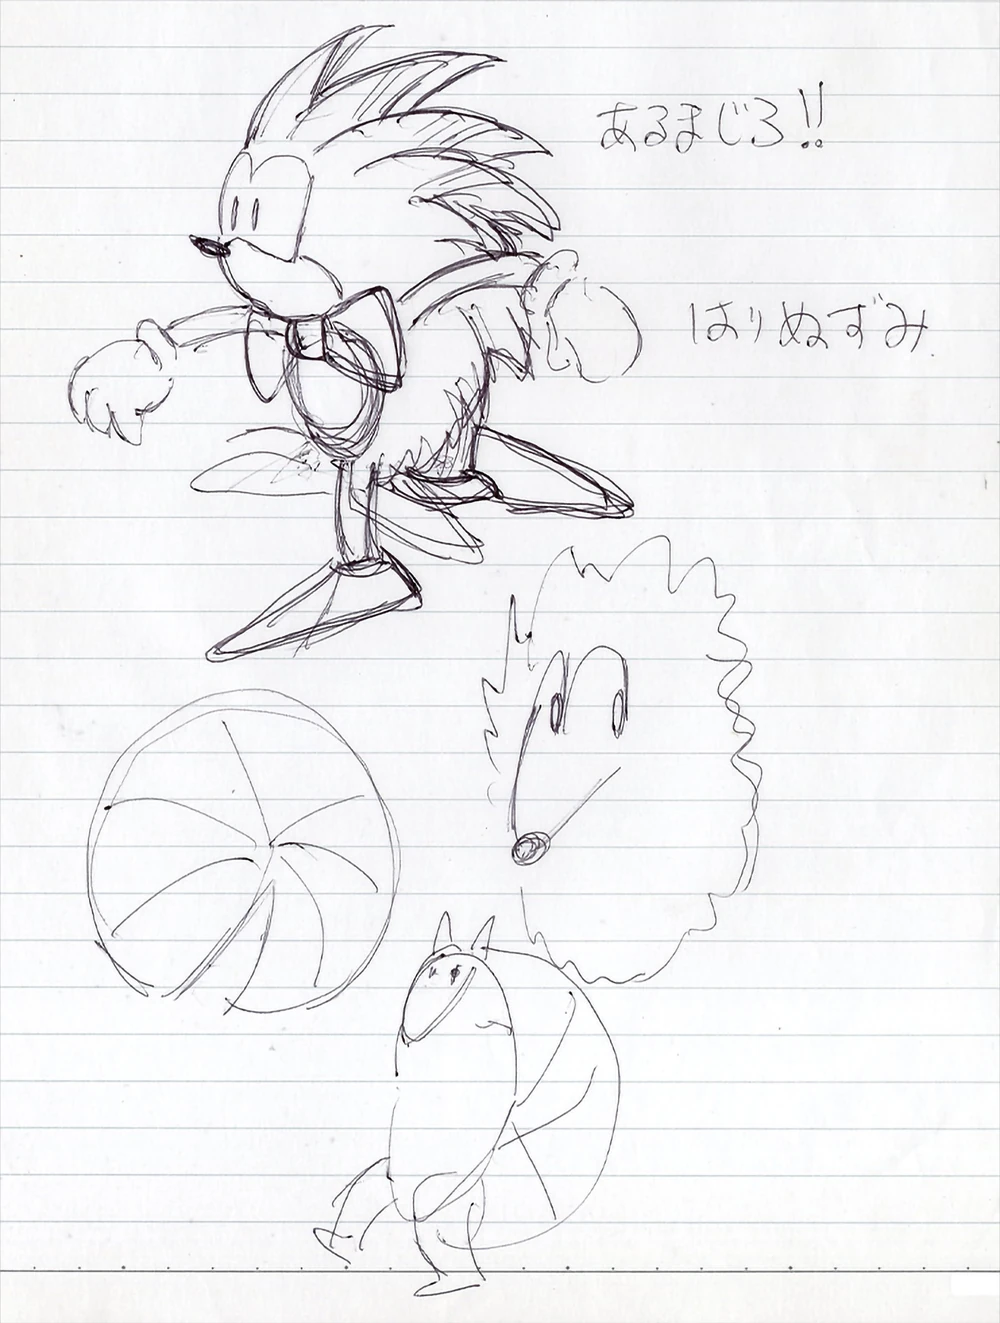 あるまじろ!!
はりぬずみ